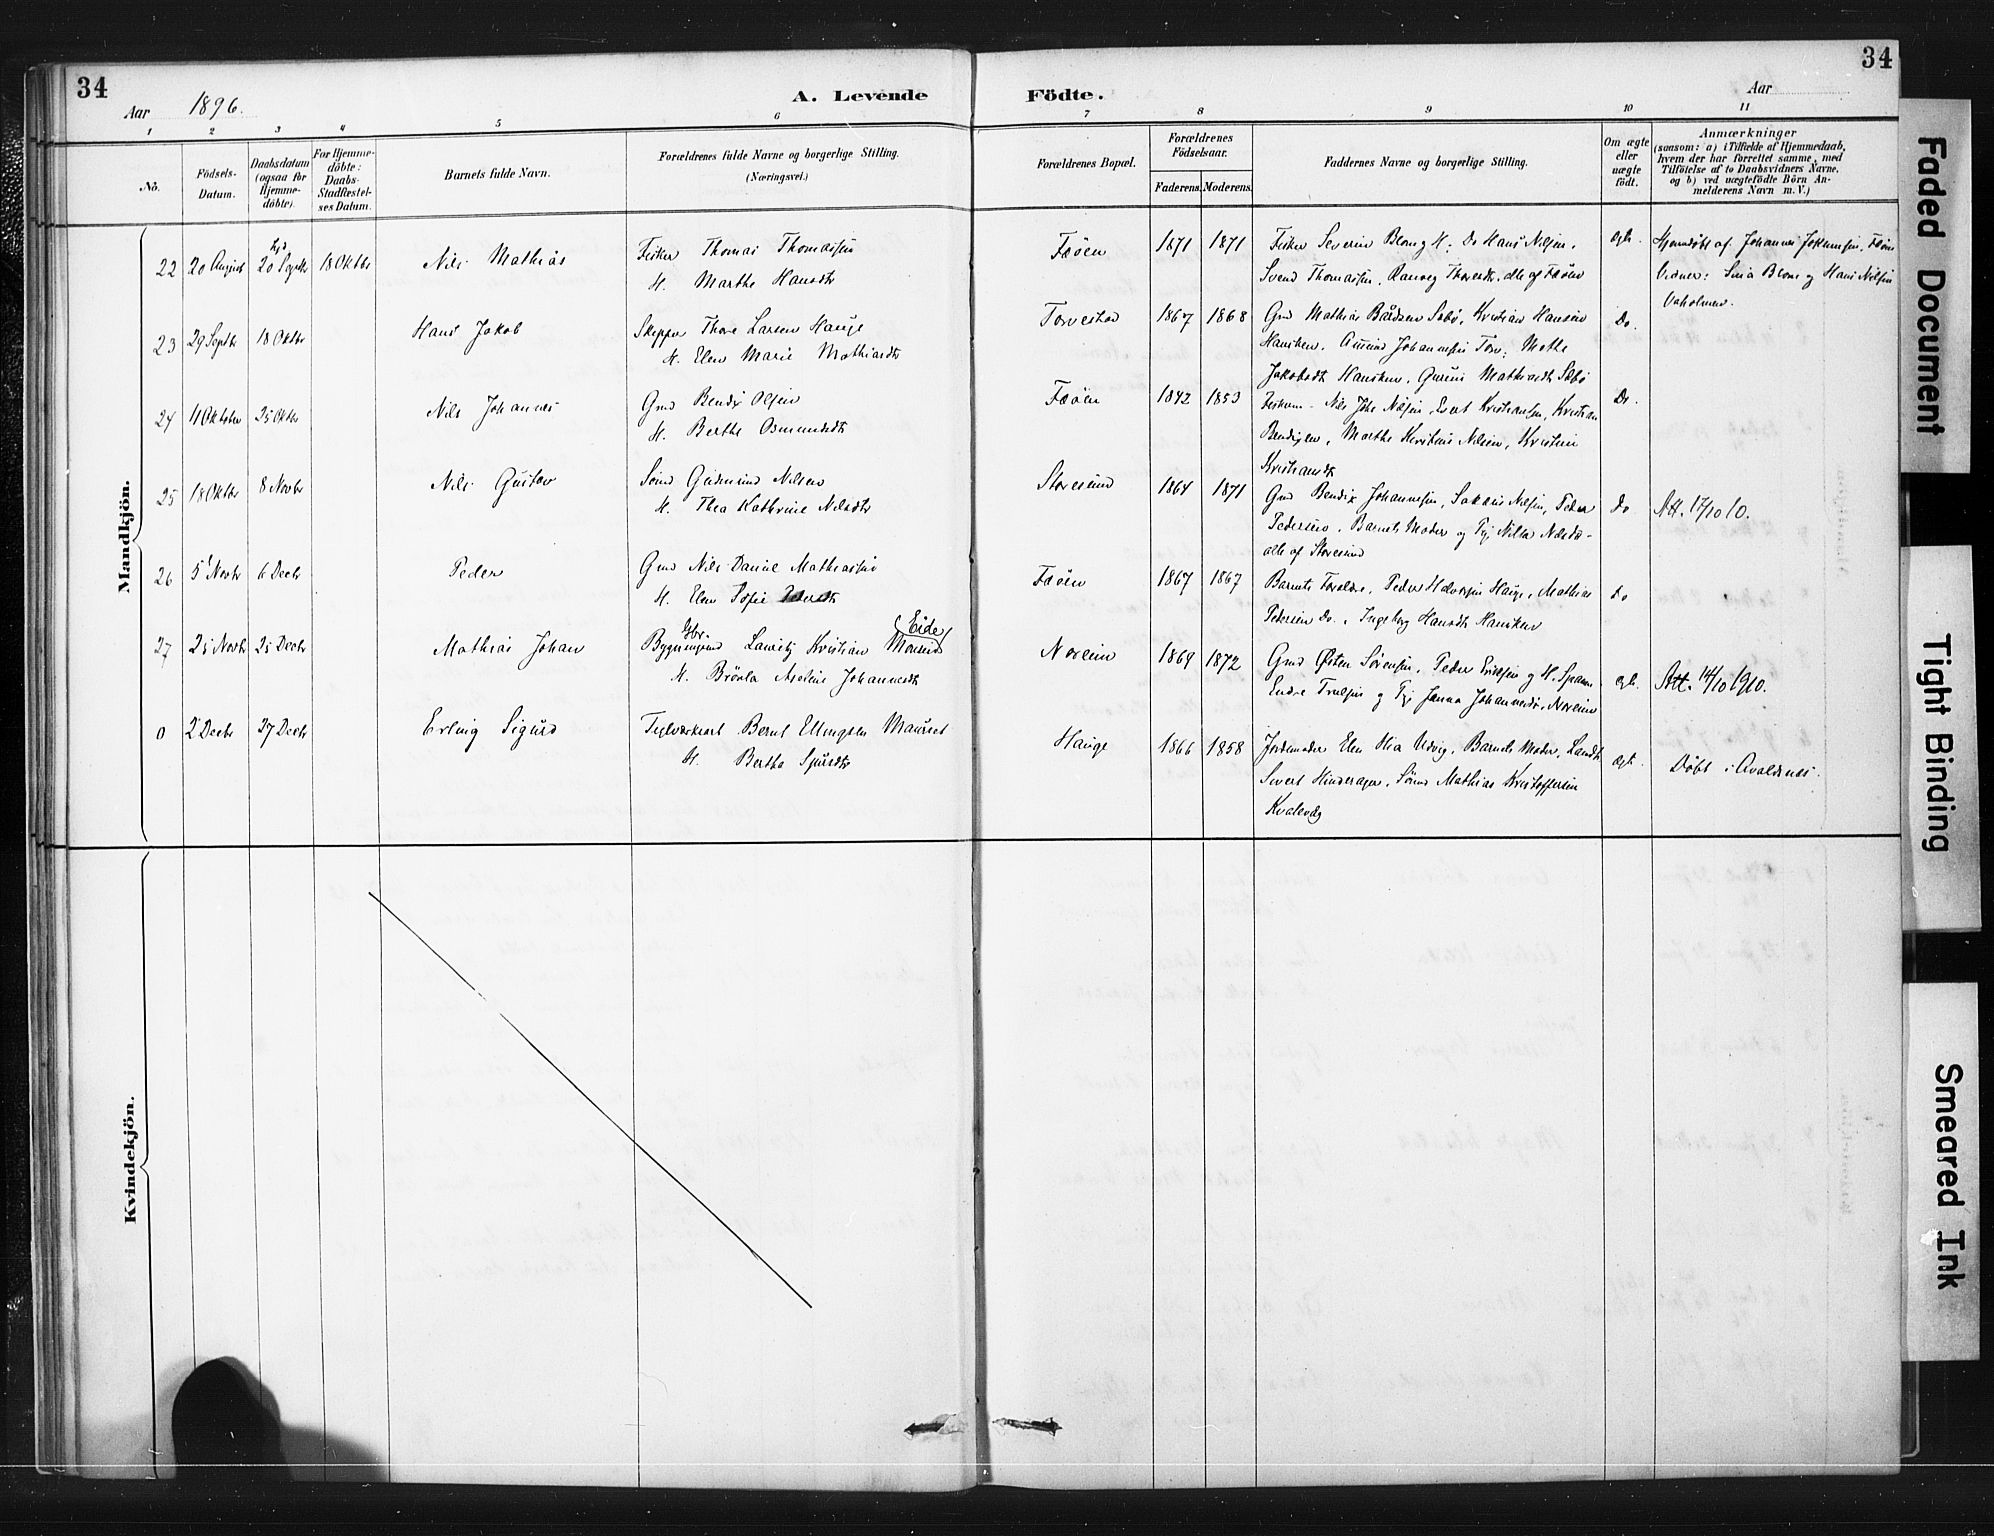 34
34
Aar 1896.
A. Levende Födte.
Aar
1 2 3 4 5 6 7 8 9 10 11
No.
Födsels-Datum.
Daabsdatum (ogsaa for Hjemme-döbte).
For Hjemme-döbte: Daabs-Stadfæstel-ses Datum.
Barnets fulde Navn.
Forældrenes fulde Navne og borgerlige Stilling.
(Næringsvei.)
Forældrenes Bopæl.
Forældrenes Födselsaar.
Faderens. Moderens.
Faddernes Navne og borgerlige Stilling.
Om ægte eller uægte födt.
Anmærkninger
(saasom: a) i Tilfælde af Hjemmedaab,
hvem der har forrettet samme, med
Tilföielse af to Daabsvidners Navne,
og b) ved uægtefödte Börn An-
melderens Navn m. V.)
Mandkjön.
22 20 August 20 Septbr 18 Oktbr Nils Mathias Fisker Thomas Thomassen
H. Marthe Hansdtr
Feöen 1871 1871 Fisker Severin Blom g H. Do Hans Nilsen,
Svend Thomassen, Ranveg Thoresdtr, alle af Feöen
ægte. Hjemdøbt af Johannes Jokumsen, Feøen
Vidner: Sina Blom og Hans Nilsen
23 29 Septbr 18 Oktbr Hans Jakob Skipper Thore Larsen Hauge
H. Elen Marie Mathiasdtr
Torvestad 1867 1868 Gmd Mathias Bårdsen Sebö, Kristian Hansen
Hansken, Amund Johannesen Torv, Mathe
Jakobsdt Hansken, Gurine Mathiasdt Sæbö
Do.
24 11 Oktober 25 Oktbr Nils Johannes Gmd Bendix Olsen
H. Berthe Osmundsdtr
Feöen 1842 1853 Nils Johs Nilsen, Evert Kristiansen, Kristian
Bendixen, Marthe Kristine Nilsen, Kristine
Kristiansdtr
Do.
25 18 Oktbr 8 Novbr Nils Gustav Sömd Gudmund Nilsen
H. Thea Kathrine Nilsdtr
Storesund 1864 1871 Gmd Bendix Johannesen, Sakarias Nilsen, Peder
Pedersen, Barnets Moder og Pg. Nilla Nilsdtr
alle af Storesund
Do Att. 17/10 10.
26 5 Novbr 6 Decbr Peder Gmd Nils Daniel Mathiassen
H. Elen Sofie Pedersdtr
Feöen 1867 1867 Barnets Forældre, Peder Halvorsen Hauge, Mathias
Pedersen Do., Ingeborg Hansdtr Hansken
do
27 25 Novbr 25 Decbr Mathias Johan Gbr. Bygningsmd Lauritz Kristian (Eide)
H. Brönla Aseline Johannesdtr
Noreim 1869 1872 Gmd Østen Sörensen, Peder Eriksen g H. Spanne
Endre Trulsen og Pg. Janna Johannesdtr. Noreim
ægt. Att. 14/10 1910.
0 2 Decbr 27 Decbr Erling Sigurd Teglværkarb Bernt Ellingsen Mauset
H. Bertha Sjursdtr
Hauge 1866 1858 Jordemoder Elen Utvig, Barnets Moder, Landh.
Sivert Hinderager, Sömd Mathias Kristoffersen
Kvalevåg
ægt. Döbt i Avaldsnes.
Kvindekjön.
Faded Document
Tight Binding
Smeared Ink